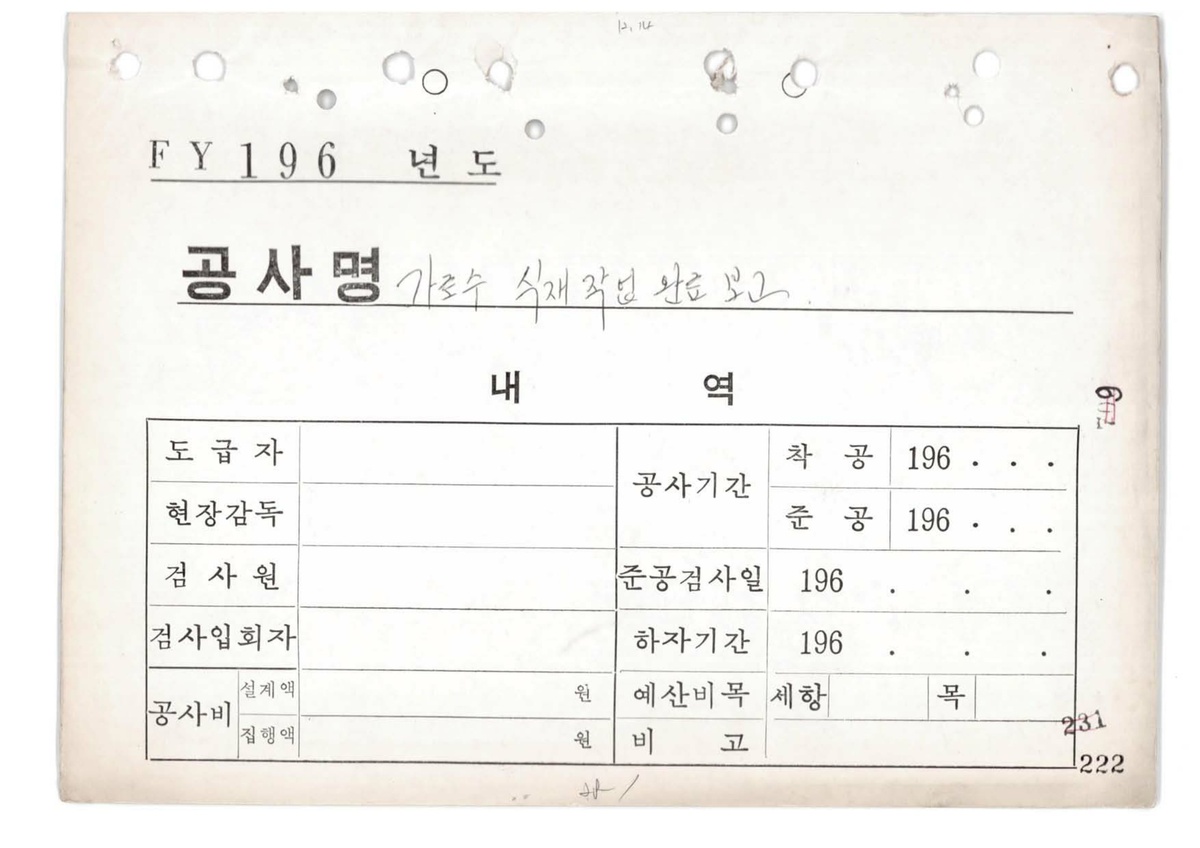 12. 14
FY 196 년도
공사명 가로수 식재작업 완료 보고.
내 역
도급자 공사기간 착 공 196 . . .
현장감독 준 공 196 . . .
검사원 준공검사일 196 . . .
검사입회자 하자기간 196 . . .
공사비 설계액 원 예산비목 세항 목
집행액 원 비 고
231
222